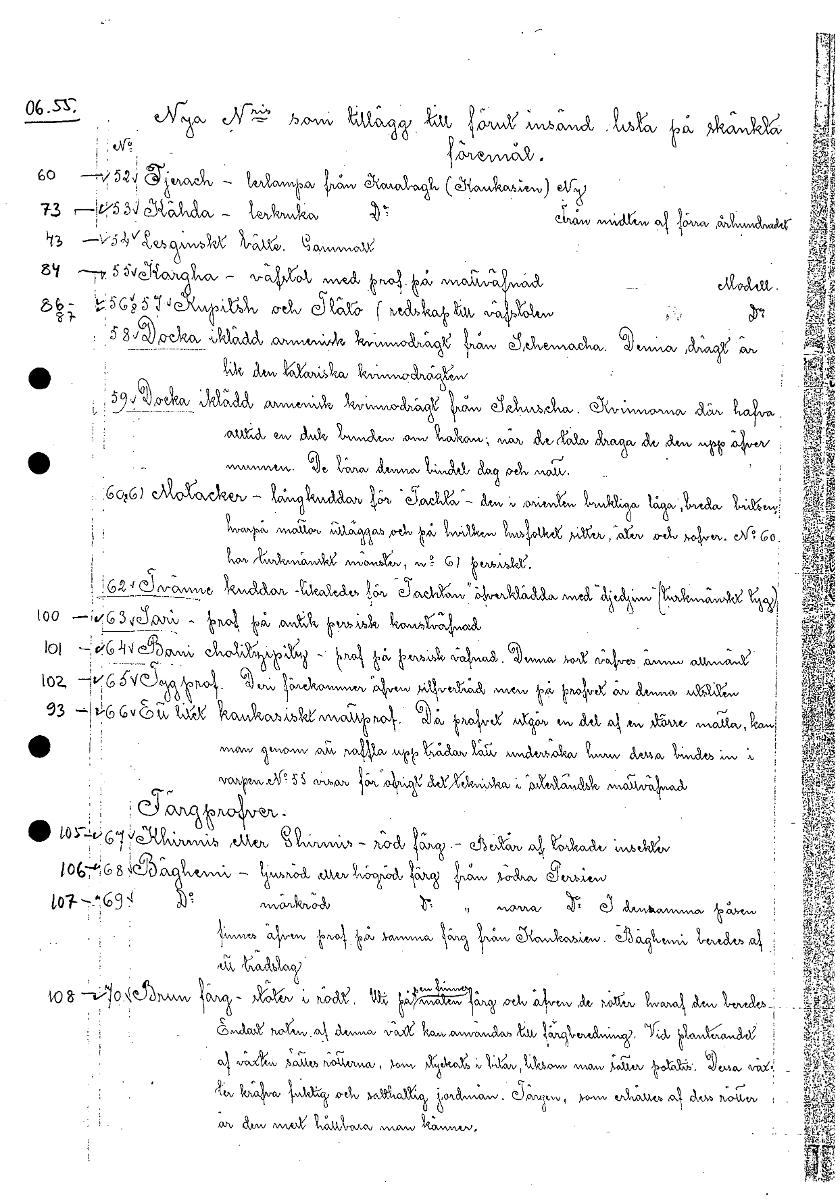 06.55.
Nya N:ris som tillägg till förut insänd lista på skänkta
föremål.
No
60 – 52 Tjerach – lerlampa från Karabagh (Kaukasien) Ny
73 – 53 Kähda – lerkruka Do Från midten af förra århundradet
43 – 54 Lesginskt bälte. Gammalt
84 – 55 Kargha – väfstol med prof på mattväfnad Modell.
86-87 56 & 57 Kupitsh och Tläto (redskap till väfstolen Do
58 Docka iklädd armenisk kvinnodrägt från Schemacha. Denna drägt är
lik den tatariska kvinnodrägten
59 Docka iklädd armenisk kvinnodrägt från Schuscha. Kvinnorna där hafva
alltid en duk bunden om hakan; när de tala draga de den upp öfver
munnen. De bära denna bindel dag och natt.
60,61 Motacker – långkuddar för "Tachta" – den i orienten brukliga låga, breda britsen,
hvarpå mattor utläggas och på hvilken husfolket sitter, äter och sofver. No 60.
har turkmänskt mönster, no 61 persiskt.
62 Tvänne kuddar – likaledes för "Tachtan" öfverklädda med "djedjim" (turkmänskt tyg)
100 – 63 Sari – prof på antik persisk konstväfnad
101 – 64 Bani – prof på persisk väfnad. Denna sort väfves ännu allmänt
102 – 65 Tygprof. Deri förekommer äfven silfvertråd men på profvet är denna utsliten
93 – 66 Ett litet kaukasiskt mattprof. Då profvet utgör en del af en större matta, kan
man genom att raffla upp trådar lätt undersöka huru dessa bindes in i
varpen No 55 visar för öfrigt det tekniska i österländsk mattväfnad
Färgprofver.
105 – 67 Khirmis eller Ghirmis – röd färg – Består af torkade insekter
106 – 68 Bäghemi – ljusröd eller högröd färg från södra Persien
107 – 69 Do mörkröd Do " norra Do I densamma påsen
finnes äfven prof på samma färg från Kaukasien. Bäghemi beredes af
ett trädslag
108 – 70 Brun färg – stöter i rödt. Uti påsen finnes färg och äfven de rötter hvaraf den beredes
Endast roten af denna växt kan användas till färgberedning. Vid planterandet
af växten sättes rötterna, som styckats i bitar, liksom man sätter potatis. Dessa väx-
ter kräfva fuktig och salthaltig jordmån. Färgen, som erhålles af dess rötter
är den mest hållbara man känner.